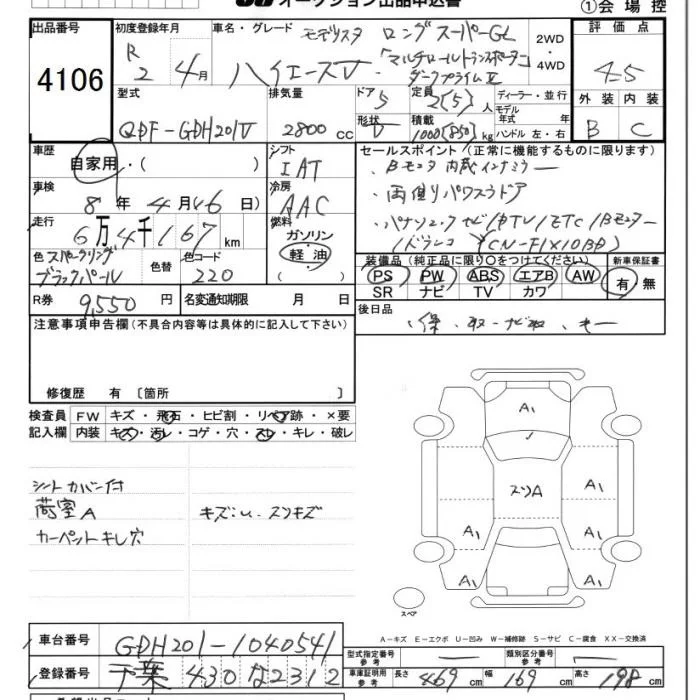 オークション出品申込書
①会場控
出品番号
4106
初度登録年月
R
2 4月
車名・グレード
モデリスタ ロングスーパーGL
ハイエースV
「マルチロールトランスポーター」
ダークプライムⅡ
2WD
・
4WD
評価点
4.5
型式
QDF-GDH201V
排気量
2800cc
ドア
5
定員
2(5)人
ディーラー・並行
形状
V
積載
1000(850)kg
モデル
年式 年
ハンドル 左・右
外装 内装
B C
車歴
自家用・( )
シフト
IAT
車検
8年4月46日)
冷房
AAC
走行
6万4千167km
燃料
ガソリン
軽油
色 スパークリング
ブラックパール
色替
色コード
220
R券 9,550円
名変通知期限 月 日
セールスポイント(正常に機能するものに限ります)
・Bモニタ内蔵インナミラー
・両側パワスラドア
・パナソニックナビ/DTV/ETC/Bモニター
/ドラレコ (CN-F1X10BD)
装備品(純正品に限り○をつけてください)
PS PW ABS エアB AW
SR ナビ TV カワ
新車保証書
有・無
後日品
・保・取・ナビ取・キー
注意事項申告欄(不具合内容等は具体的に記入して下さい)
修復歴 有 〔箇所 〕
検査員
記入欄
FW キズ・飛石・ヒビ割・リペア跡・×要
内装 キズ・汚レ・コゲ・穴・スレ・キレ・破レ
シートカバー付
荷室A
カーペットキレ穴
キズ:u、スリキズ
A1
スリA
A1
A1
A1
A1
A1
スペア
A-キズ E-エクボ U-凹み W-補修跡 S-サビ C-腐食 XX-交換済
車台番号
GDH201-1040541
登録番号
千葉 430 な 2312
型式指定番号
参考
類別区分番号
参考
車庫証明用
参考
長さ 469cm
幅 169cm
高さ 198cm